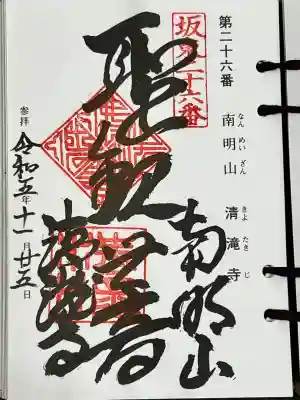 第二十六番
南明山 清滝寺
なんめいざん きよたきじ
坂東二十六番
南明山
聖観世音
清瀧寺
参拝 令和五年十一月廿五日